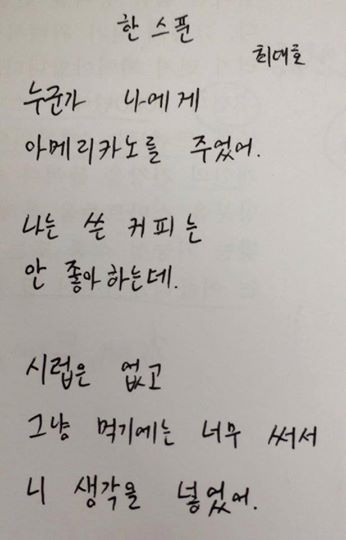 한 스푼
최대호
누군가 나에게
아메리카노를 주었어.
나는 쓴 커피는
안 좋아하는데.
시럽은 없고
그냥 먹기에는 너무 써서
니 생각을 넣었어.